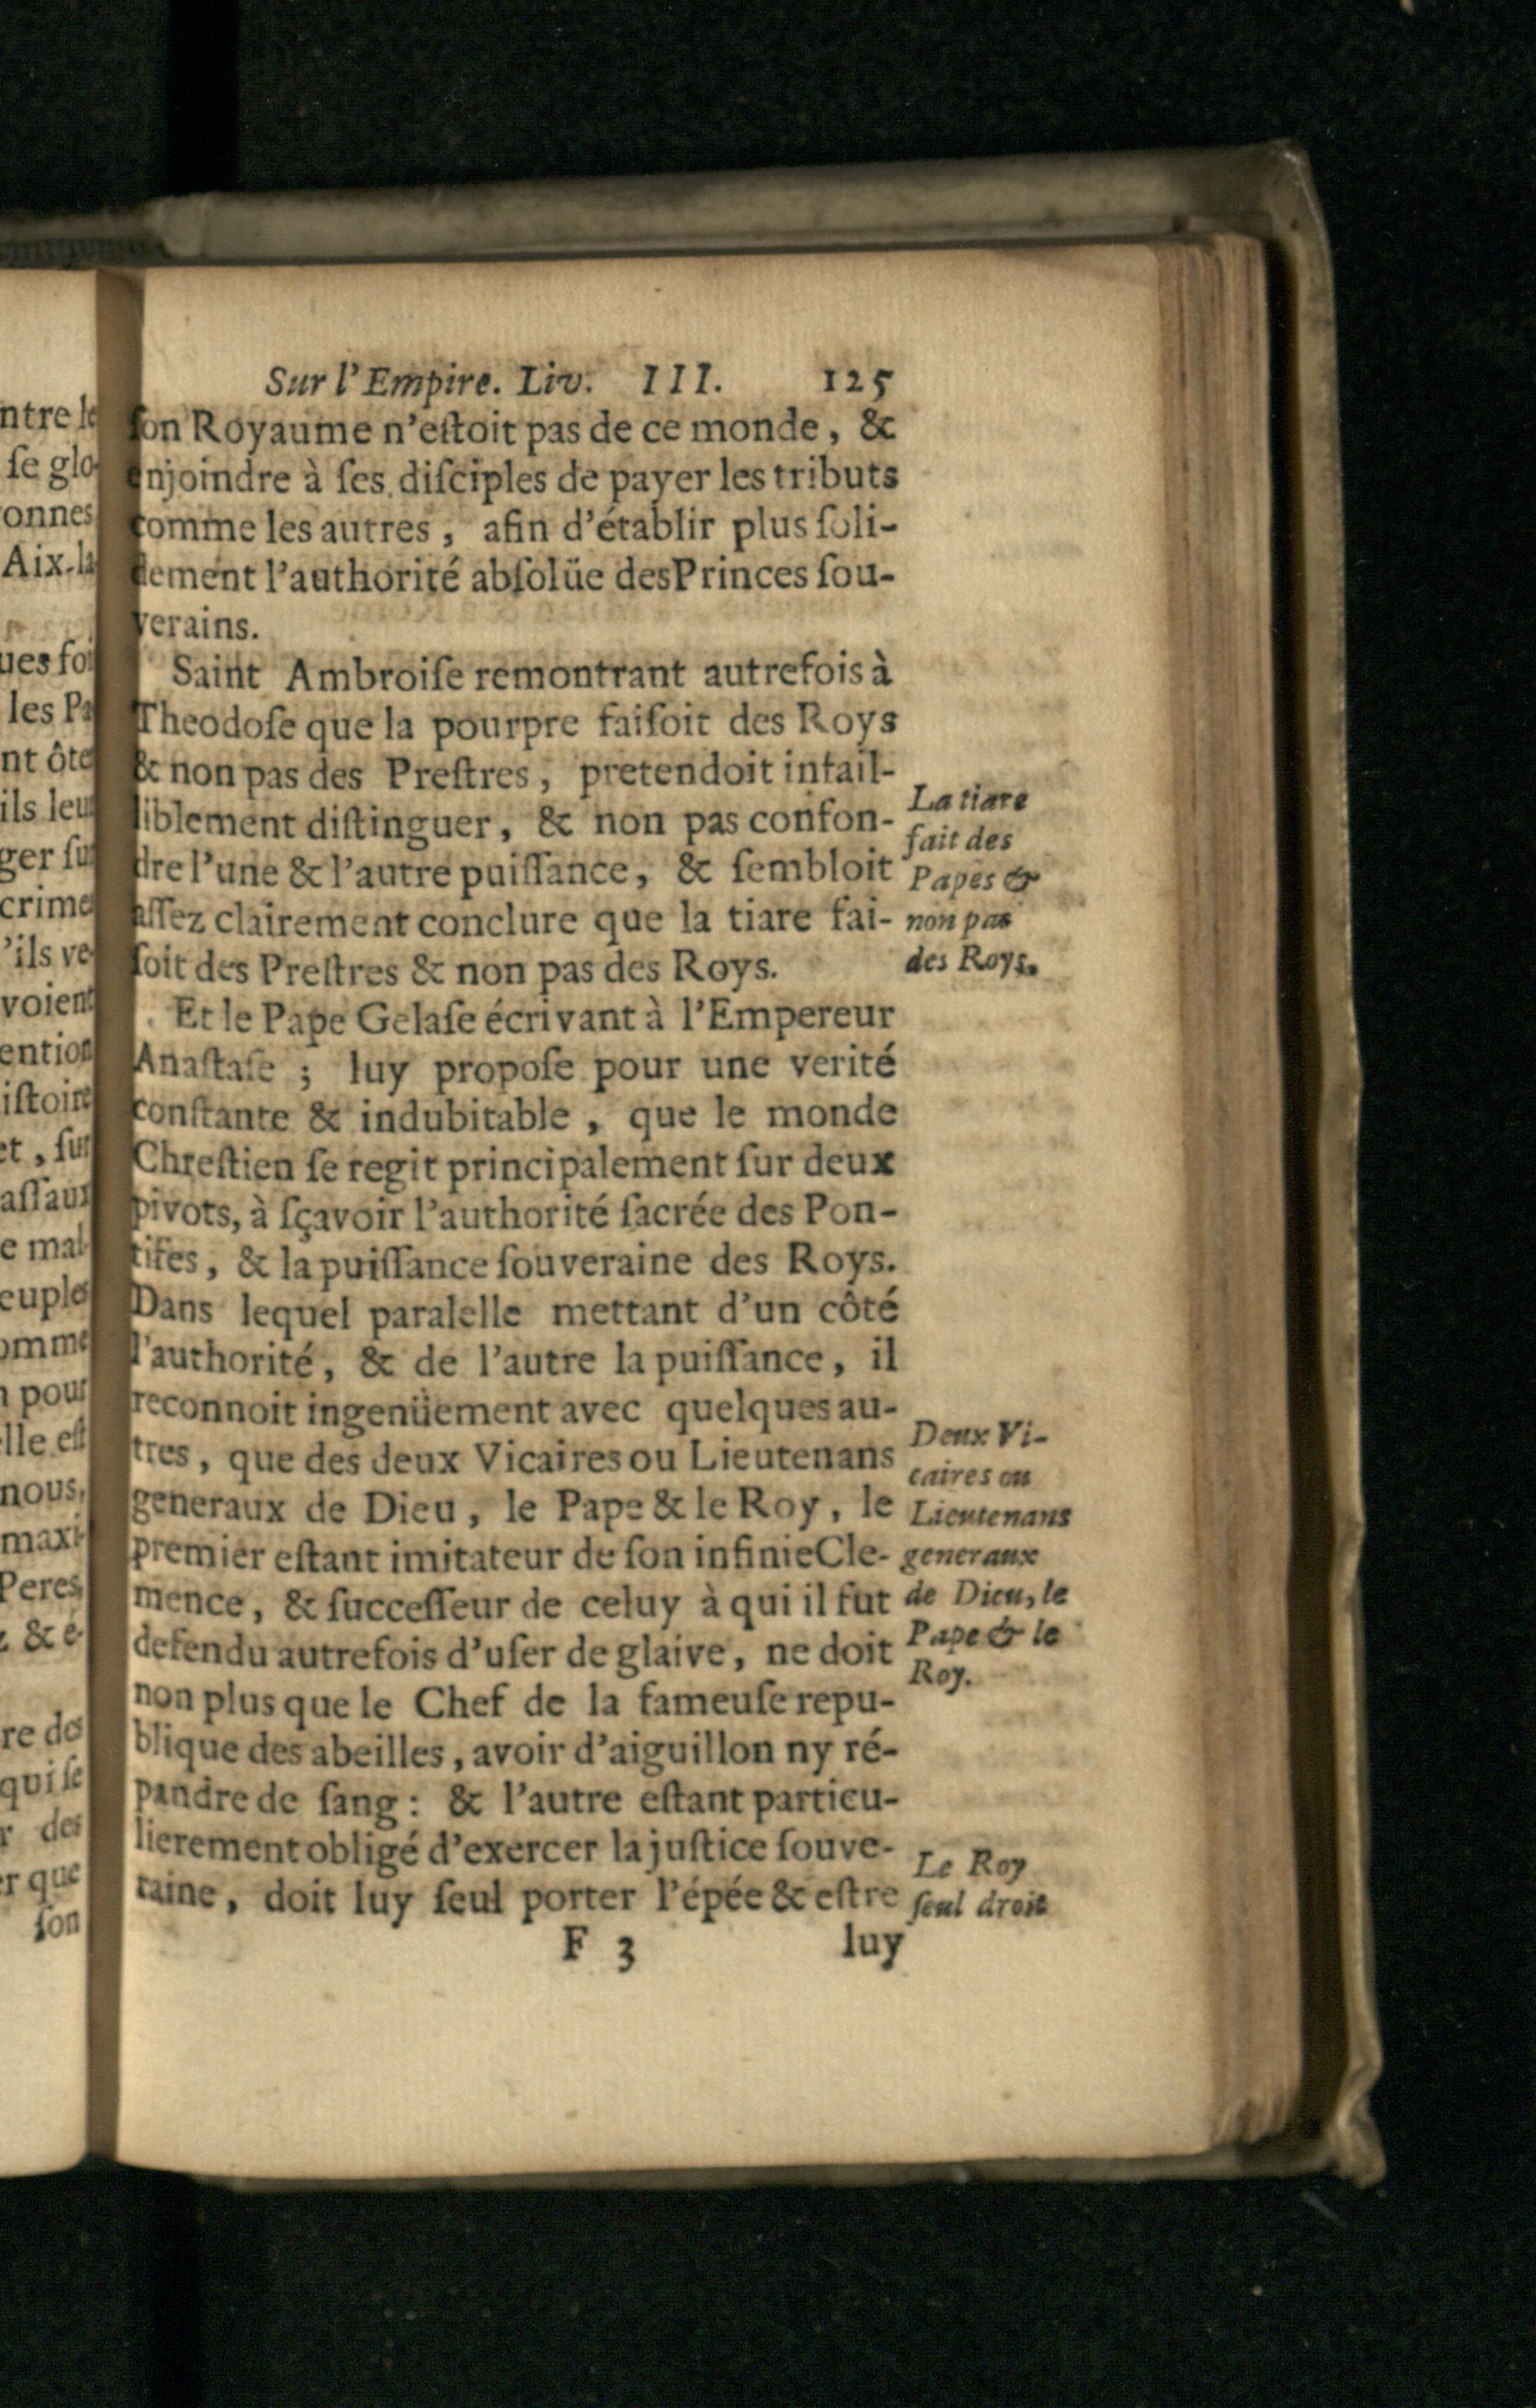 Sur l'Empire. Liv. III. 125
ſon Royaume n'eſtoit pas de ce monde, &
enjoindre à ſes diſciples de payer les tributs
comme les autres, afin d'établir plus ſoli-
dement l'authorité abſolüe desPrinces ſou-
verains.
Saint Ambroiſe remontrant autrefois à
Theodoſe que la pourpre faiſoit des Roys
& non pas des Preſtres, pretendoit infail-
liblement diſtinguer, & non pas confon-
dre l'une & l'autre puiſſance, & ſembloit
aſſez clairement conclure que la tiare fai-
ſoit des Preſtres & non pas des Roys.
La tiare
fait des
Papes &
non pas
des Roys.
Et le Pape Gelaſe écrivant à l'Empereur
Anaſtaſe ; luy propoſe pour une verité
conſtante & indubitable, que le monde
Chreſtien ſe regit principalement ſur deux
pivots, à ſçavoir l'authorité ſacrée des Pon-
tifes, & la puiſſance ſouveraine des Roys.
Dans lequel paralelle mettant d'un côté
l'authorité, & de l'autre la puiſſance, il
reconnoit ingenüement avec quelques au-
tres, que des deux Vicaires ou Lieutenans
generaux de Dieu, le Pape & le Roy, le
premier eſtant imitateur de ſon infinieCle-
mence, & ſucceſſeur de celuy à qui il fut
defendu autrefois d'uſer de glaive, ne doit
non plus que le Chef de la fameuſe repu-
blique des abeilles, avoir d'aiguillon ny ré-
pandre de ſang : & l'autre eſtant particu-
lierement obligé d'exercer la juſtice ſouve-
raine, doit luy ſeul porter l'épée & eſtre
Deux Vi-
caires ou
Lieutenans
generaux
de Dieu, le
Pape & le
Roy.
Le Roy
ſeul droit
F 3 luy
ntre le
ſe glo-
onnes
Aix-la
ues foi
les Pa
nt ôte
ils leur
ger ſur
crime
'ils ve-
voient
ention
iſtoire
et, ſur
aſſaux
e mal-
euples
omme
n pour
lle eſt
nous,
maxi-
Peres
z & é-
re des
qui ſe
r des
er que
ſon